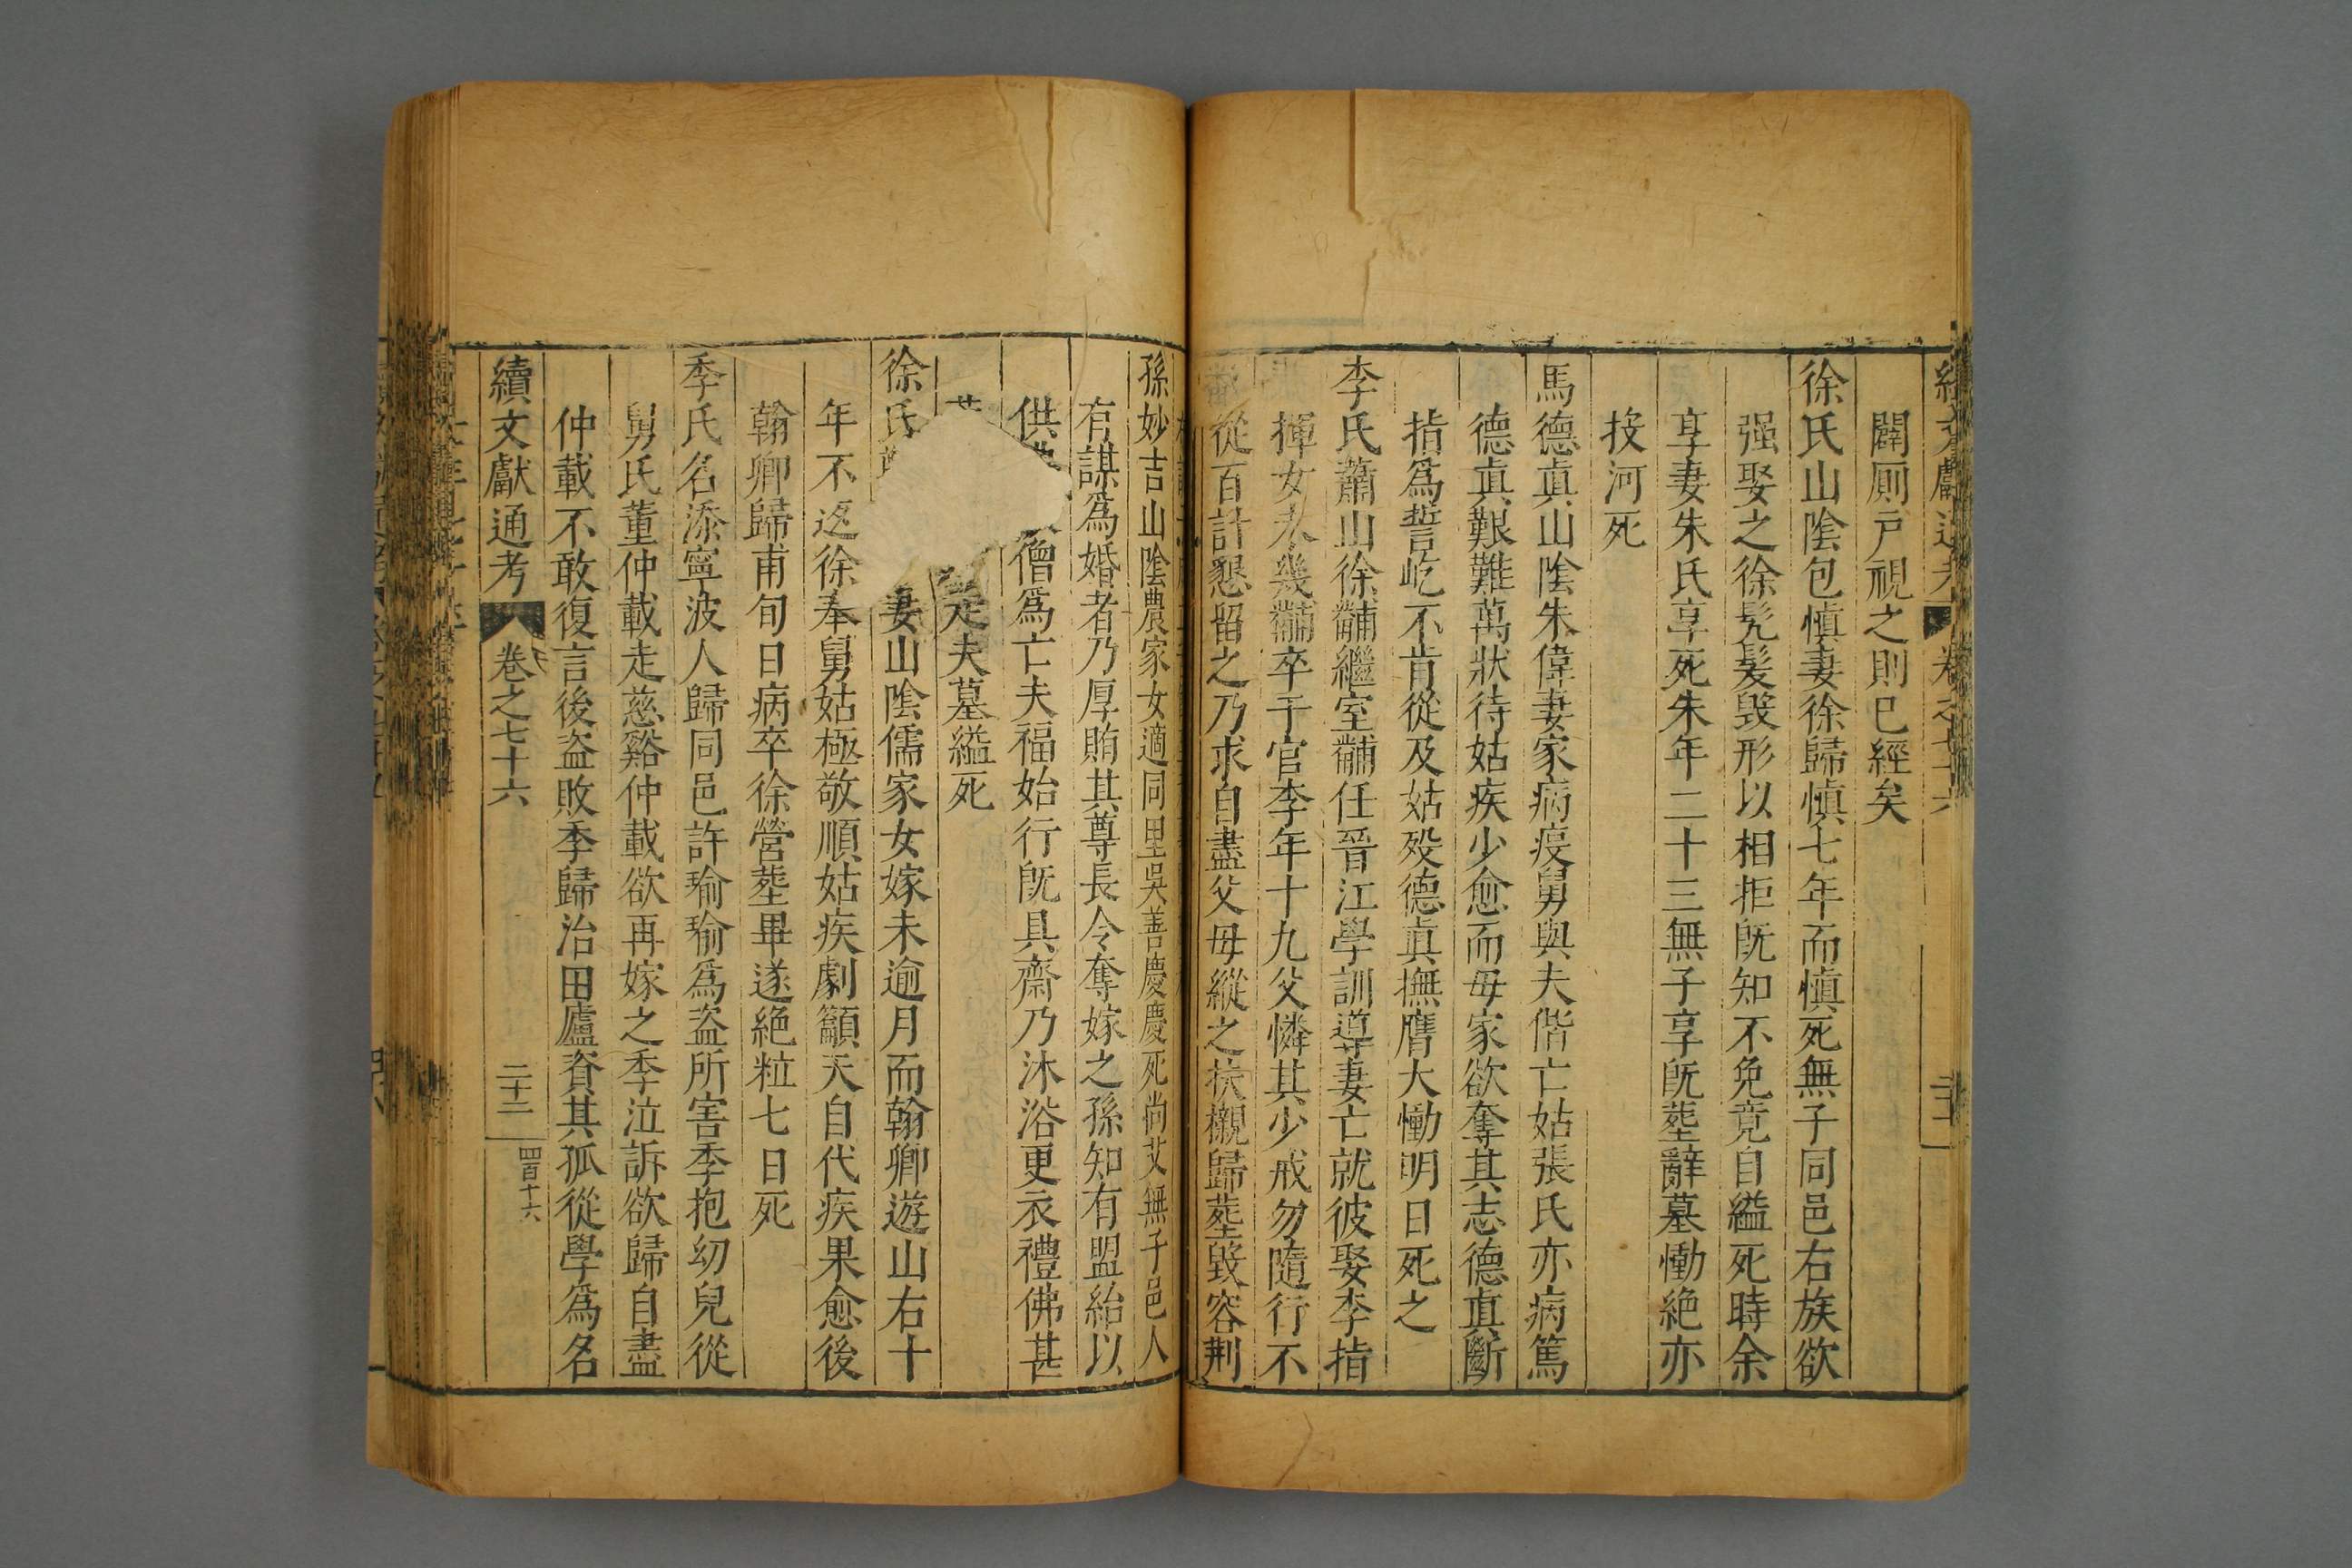 續文獻通考 卷之七十六 二十二
闢厠戸視之則已經矣
徐氏山陰包愼妻徐歸愼七年而愼死無子同邑右族欲
强娶之徐髡髮毀形以相拒旣知不免竟自縊死時余
享妻朱氏享死朱年二十三無子享旣塟辭墓慟絶亦
投河死
馬德眞山陰朱偉妻家病疫舅與夫偕亡姑張氏亦病篤
德眞艱難萬狀待姑疾少愈而母家欲奪其志德眞斷
指爲誓屹不肯從及姑歿德眞撫膺大慟明日死之
李氏蕭山徐黼繼室黼任晉江學訓導妻亡就彼娶李指
揮女未幾黼卒于官李年十九父憐其少戒勿隨行不
從百計懇留之乃求自盡父母縱之扶櫬歸塟毀容荆
孫妙吉山陰農家女適同里吳善慶慶死尚艾無子邑人
有謀爲婚者乃厚賄其尊長令奪嫁之孫知有盟紿以
供僧爲亡夫福始行旣具齋乃沐浴更衣禮佛甚
走夫墓縊死
徐氏妻山陰儒家女嫁未逾月而翰卿遊山右十
年不返徐奉舅姑極敬順姑疾劇籲天自代疾果愈後
翰卿歸甫旬日病卒徐營塟畢遂絶粒七日死
季氏名添寧波人歸同邑許瑜瑜爲盗所害季抱幼兒從
舅氏董仲載走慈谿仲載欲再嫁之季泣訴欲歸自盡
仲載不敢復言後盗敗季歸治田廬資其孤從學爲名
續文獻通考 卷之七十六 二十二 四百十六